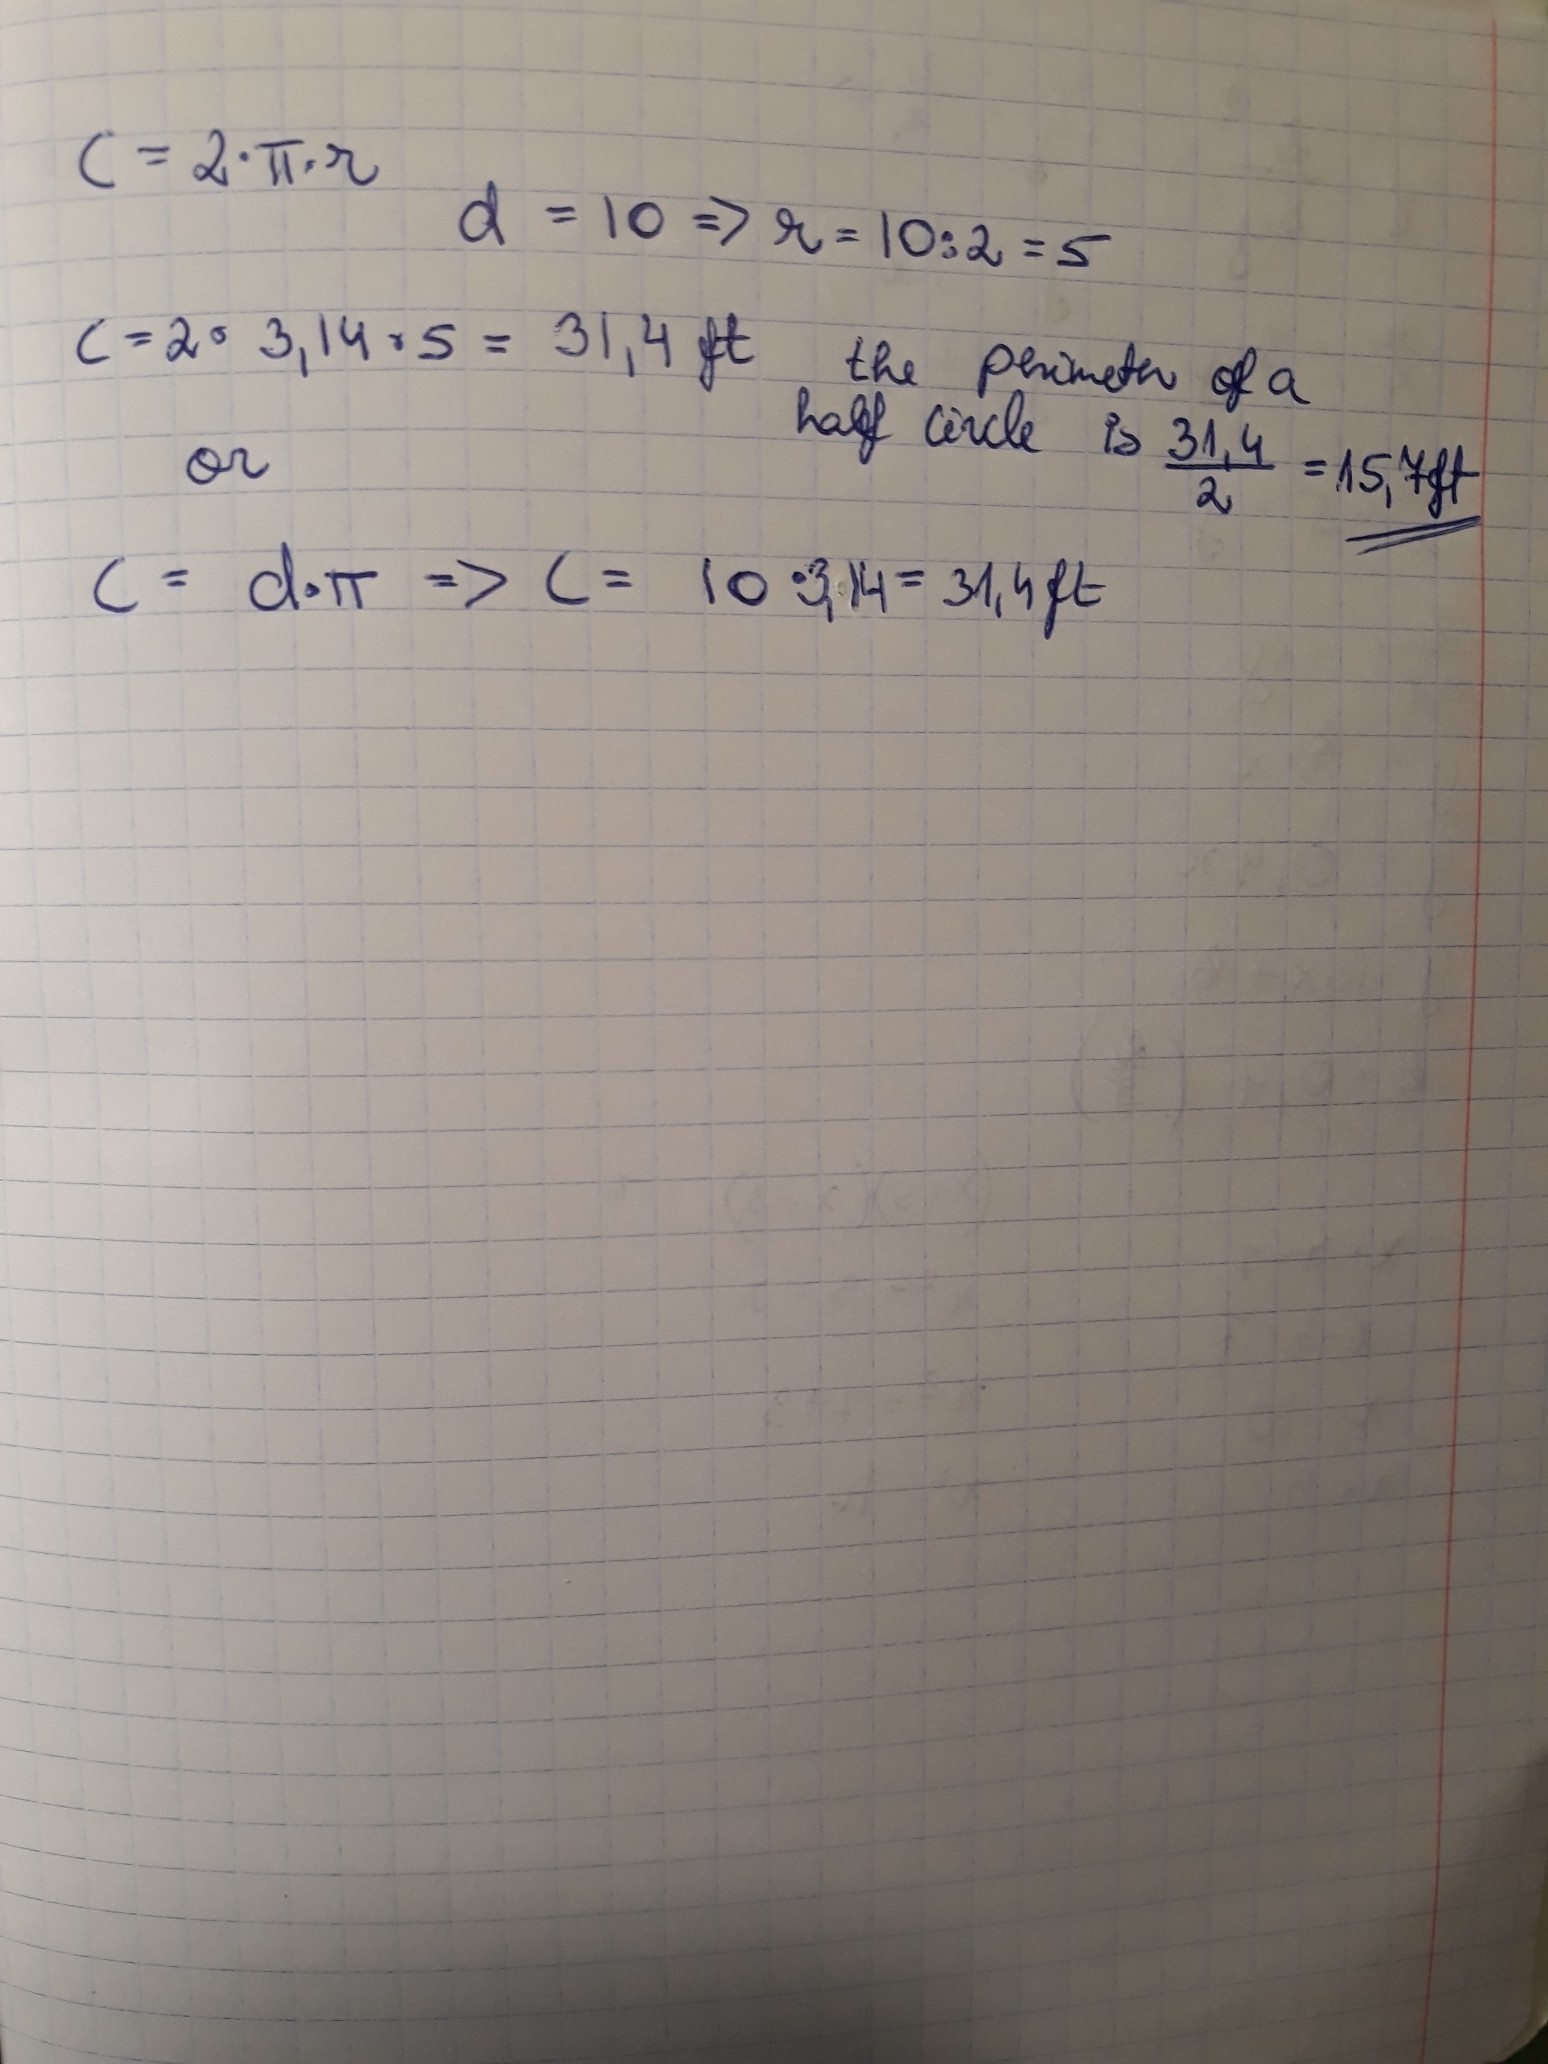 C = 2·π·r
d = 10 => r = 10:2 = 5
C = 2· 3,14 · 5 = 31,4 ft
the perimeter of a
half circle is 31,4/2 = 15,7ft
or
C = d·π => C = 10 ·3,14 = 31,4 ft